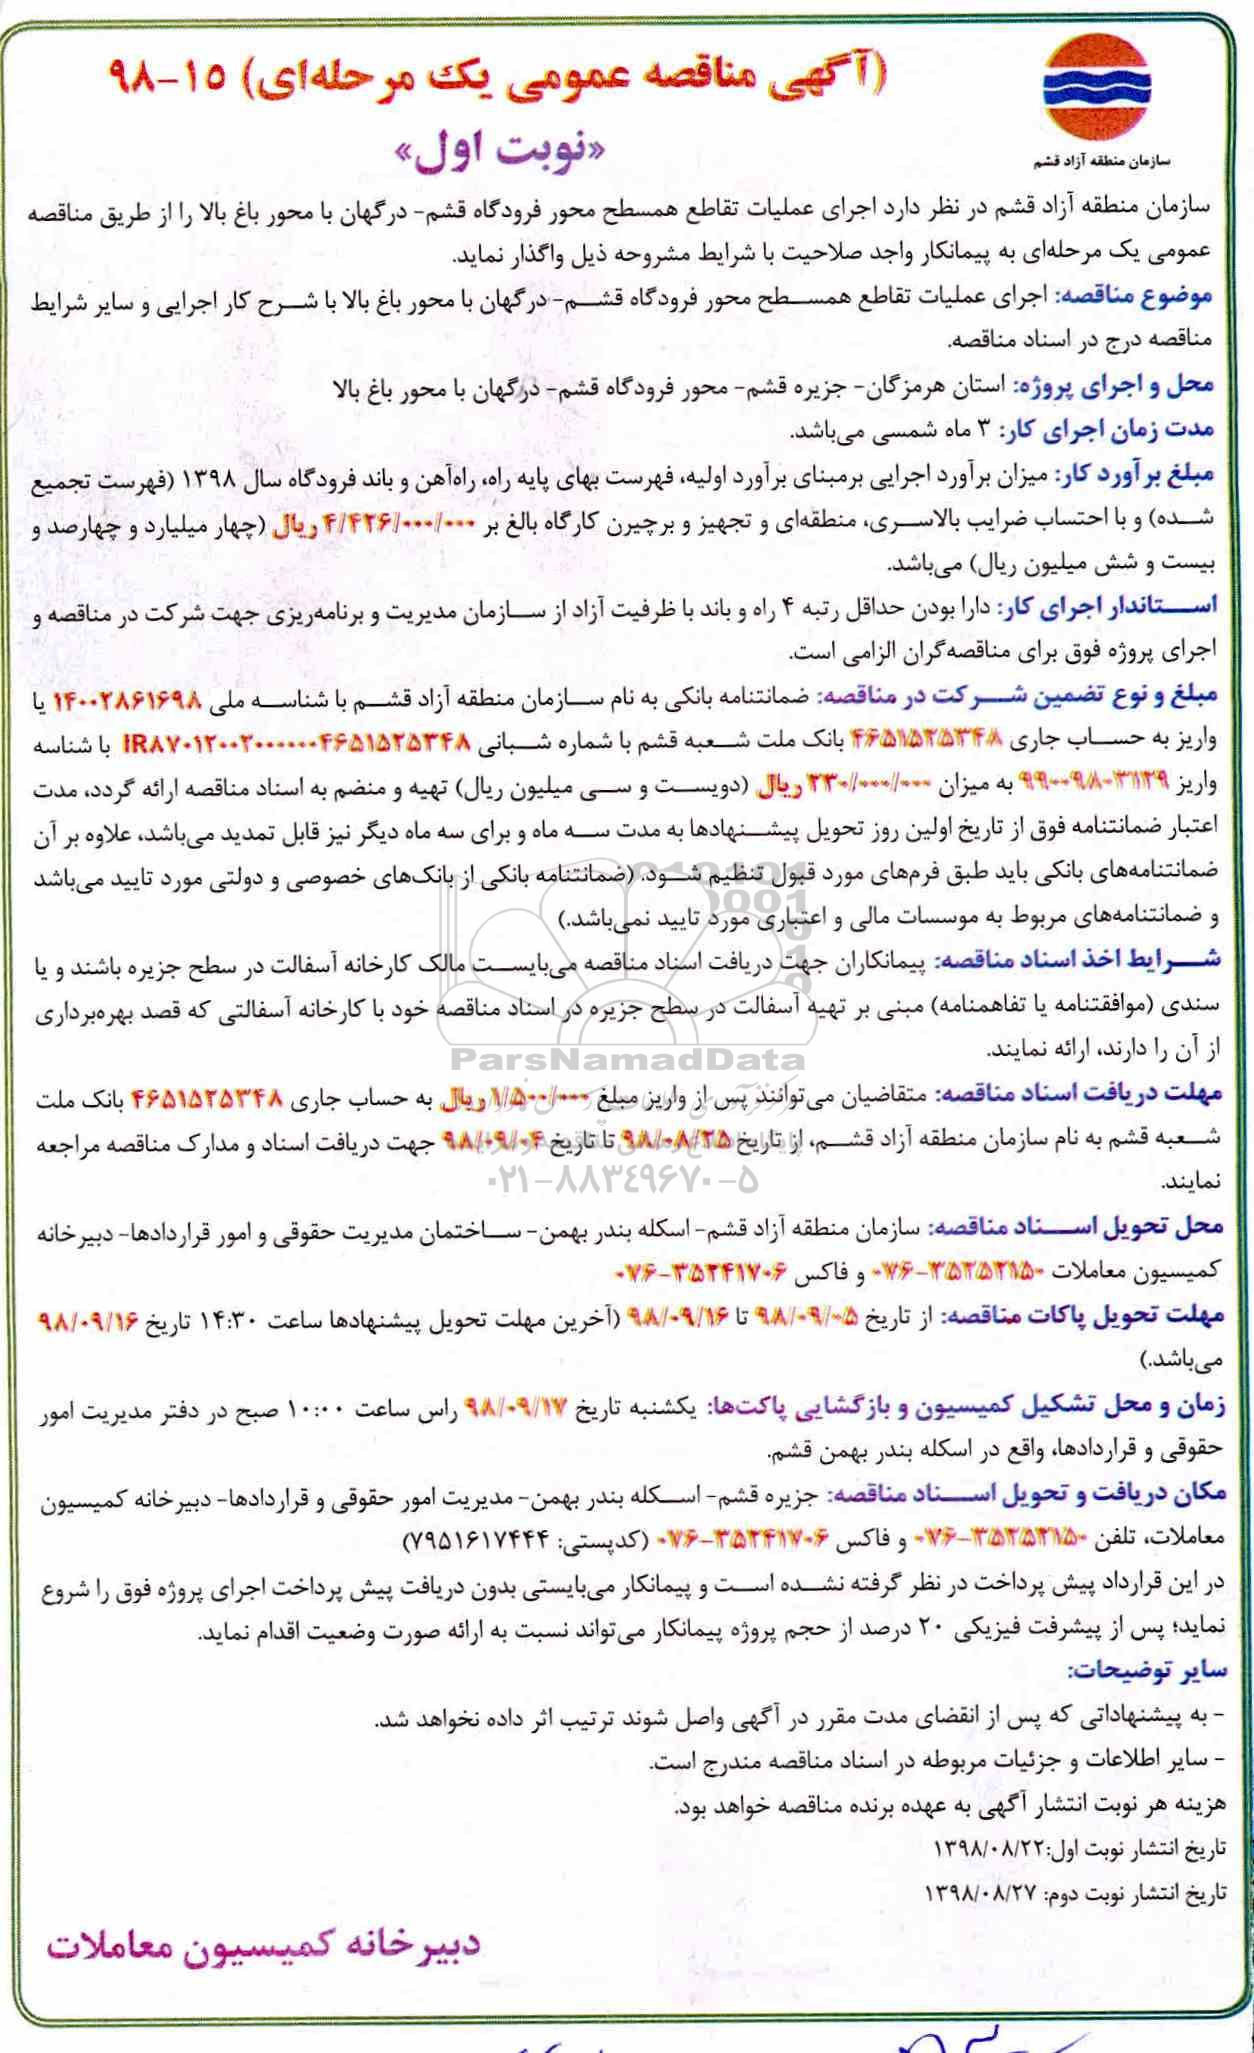 (آگهی مناقصه عمومی یک مرحله‌ای) ۱۵-۹۸
«نوبت اول»
سازمان منطقه آزاد قشم
سازمان منطقه آزاد قشم در نظر دارد اجرای عملیات تقاطع همسطح محور فرودگاه قشم- درگهان با محور باغ بالا را از طریق مناقصه
عمومی یک مرحله‌ای به پیمانکار واجد صلاحیت با شرایط مشروحه ذیل واگذار نماید.
موضوع مناقصه: اجرای عملیات تقاطع همسطح محور فرودگاه قشم- درگهان با محور باغ بالا با شرح کار اجرایی و سایر شرایط
مناقصه درج در اسناد مناقصه.
محل و اجرای پروژه: استان هرمزگان- جزیره قشم- محور فرودگاه قشم- درگهان با محور باغ بالا
مدت زمان اجرای کار: ۳ ماه شمسی می‌باشد.
مبلغ برآورد کار: میزان برآورد اجرایی برمبنای برآورد اولیه، فهرست بهای پایه راه، راه‌آهن و باند فرودگاه سال ۱۳۹۸ (فهرست تجمیع
شده) و با احتساب ضرایب بالاسری، منطقه‌ای و تجهیز و برچیرن کارگاه بالغ بر ۴/۴۲۶/۰۰۰/۰۰۰ ریال (چهار میلیارد و چهارصد و
بیست و شش میلیون ریال) می‌باشد.
استاندار اجرای کار: دارا بودن حداقل رتبه ۴ راه و باند با ظرفیت آزاد از سازمان مدیریت و برنامه‌ریزی جهت شرکت در مناقصه و
اجرای پروژه فوق برای مناقصه‌گران الزامی است.
مبلغ و نوع تضمین شرکت در مناقصه: ضمانتنامه بانکی به نام سازمان منطقه آزاد قشم با شناسه ملی ۱۴۰۰۲۸۶۱۶۹۸ یا
واریز به حساب جاری ۴۶۵۱۵۲۵۳۴۸ بانک ملت شعبه قشم با شماره شبانی IR۸۷۰۱۲۰۰۲۰۰۰۰۰۰۴۶۵۱۵۲۵۳۴۸ با شناسه
واریز ۹۹۰۰۹۸۰۳۱۲۹ به میزان ۲۳۰/۰۰۰/۰۰۰ ریال (دویست و سی میلیون ریال) تهیه و منضم به اسناد مناقصه ارائه گردد، مدت
اعتبار ضمانتنامه فوق از تاریخ اولین روز تحویل پیشنهادها به مدت سه ماه و برای سه ماه دیگر نیز قابل تمدید می‌باشد، علاوه بر آن
ضمانتنامه‌های بانکی باید طبق فرم‌های مورد قبول تنظیم شود. (ضمانتنامه بانکی از بانک‌های خصوصی و دولتی مورد تایید می‌باشد
و ضمانتنامه‌های مربوط به موسسات مالی و اعتباری مورد تایید نمی‌باشد.)
شرایط اخذ اسناد مناقصه: پیمانکاران جهت دریافت اسناد مناقصه می‌بایست مالک کارخانه آسفالت در سطح جزیره باشند و یا
سندی (موافقتنامه یا تفاهمنامه) مبنی بر تهیه آسفالت در سطح جزیره در اسناد مناقصه خود با کارخانه آسفالتی که قصد بهره‌برداری
از آن را دارند، ارائه نمایند.
ParsNamadData
مهلت دریافت اسناد مناقصه: متقاضیان می‌توانند پس از واریز مبلغ ۱/۵۰۰/۰۰۰ ریال به حساب جاری ۴۶۵۱۵۲۵۳۴۸ بانک ملت
شعبه قشم به نام سازمان منطقه آزاد قشم، از تاریخ ۹۸/۰۸/۲۵ تا تاریخ ۹۸/۰۹/۰۴ جهت دریافت اسناد و مدارک مناقصه مراجعه
نمایند.
۰۲۱-۸۸۳۴۹۶۷۰-۵
محل تحویل اسناد مناقصه: سازمان منطقه آزاد قشم- اسکله بندر بهمن- ساختمان مدیریت حقوقی و امور قراردادها- دبیرخانه
کمیسیون معاملات ۰۷۶-۳۵۲۵۲۱۵۰ و فاکس ۰۷۶-۳۵۲۴۱۷۰۶
مهلت تحویل پاکات مناقصه: از تاریخ ۹۸/۰۹/۰۵ تا ۹۸/۰۹/۱۶ (آخرین مهلت تحویل پیشنهادها ساعت ۱۴:۳۰ تاریخ ۹۸/۰۹/۱۶
می‌باشد.)
زمان و محل تشکیل کمیسیون و بازگشایی پاکت‌ها: یکشنبه تاریخ ۹۸/۰۹/۱۷ راس ساعت ۱۰:۰۰ صبح در دفتر مدیریت امور
حقوقی و قراردادها، واقع در اسکله بندر بهمن قشم.
مکان دریافت و تحویل اسناد مناقصه: جزیره قشم- اسکله بندر بهمن- مدیریت امور حقوقی و قراردادها- دبیرخانه کمیسیون
معاملات، تلفن ۰۷۶-۳۵۲۵۲۱۵۰ و فاکس ۰۷۶-۳۵۲۴۱۷۰۶ (کدپستی: ۷۹۵۱۶۱۷۴۴۴)
در این قرارداد پیش پرداخت در نظر گرفته نشده است و پیمانکار می‌بایستی بدون دریافت پیش پرداخت اجرای پروژه فوق را شروع
نماید؛ پس از پیشرفت فیزیکی ۲۰ درصد از حجم پروژه پیمانکار می‌تواند نسبت به ارائه صورت وضعیت اقدام نماید.
سایر توضیحات:
- به پیشنهاداتی که پس از انقضای مدت مقرر در آگهی واصل شوند ترتیب اثر داده نخواهد شد.
- سایر اطلاعات و جزئیات مربوطه در اسناد مناقصه مندرج است.
هزینه هر نوبت انتشار آگهی به عهده برنده مناقصه خواهد بود.
تاریخ انتشار نوبت اول: ۱۳۹۸/۰۸/۲۲
تاریخ انتشار نوبت دوم: ۱۳۹۸/۰۸/۲۷
دبیرخانه کمیسیون معاملات